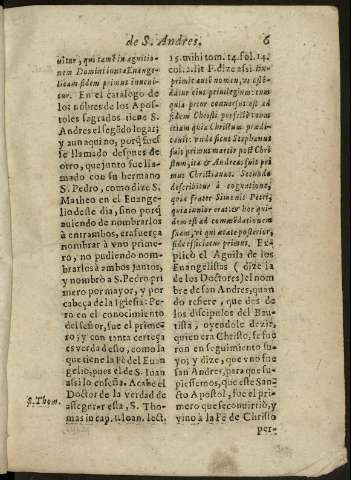 de S. Andres.
6
uitur, qui tamẽ in agnitio-
nem Domini iuxta Euange-
licam fidem primus inueni-
tur. En el catalogo de
los nõbres de los Apos-
toles sagrados tiene S.
Andres el segũdo lugar;
y aun aqui no, porq̃ fues
se llamado despues de
otro, que junto fue lla-
mado con su hermano
S. Pedro, como dize S.
Matheo en el Euange-
lio deste dia, sino porq̃
auiendo de nombrarlos
à entrambos, era fuerça
nombrar à vno prime-
ro, no pudiendo nom-
brarlos à ambos juntos,
y nombrò a S. Pedro pri
mero por mayor, y por
cabeça de la Iglesia: Pe-
ro en el conocimiento
del señor, fue el prime-
ro; y con tanta certeça
es verdad esto, como la
que tiene la Fè del Euan
gelio, pues el de S. Ioan
assi lo enseña. Acabe el
Doctor de la verdad de
assegurar esta, S. Tho-
mas in cap. 1. Ioan. lect.
S. Thom.
15. mihi tom. 14. fol. 14.
col. 2. lit F. dize assi: Ex-
primit autẽ nomen, vt ostẽ-
datur eius priuilegium: tum
quia prior conuersus est ad
fidem Christi perfectè: tum
etiam quia Christum prædi-
cauit: vnde sicut Stephanus
fuit primus martir post Chri
stum, ita & Andreas fuit pri
mus Christianus. Secundo
describitur à cognatione,
quia frater Simonis Petri,
quia iunior erat: & hoc qui-
dem est ad commẽdationem
suam, vt qui ætate posterior,
fide efficiatur primus. Ex-
plicò el Aguila de los
Euangelistas (dize la
de los Doctores) el nom
bre de san Andres, quan
do refiere, que dos de
los discipulos del Bau-
tista, oyendole dezir,
quien era Christo, se fue
ron en seguimiento su-
yo; y dize, que vno fue
san Andres, para que su-
piessemos, que este San-
cto Apostol, fue el pri-
mero que se conuirtiò, y
vino à la Fè de Christo
per-